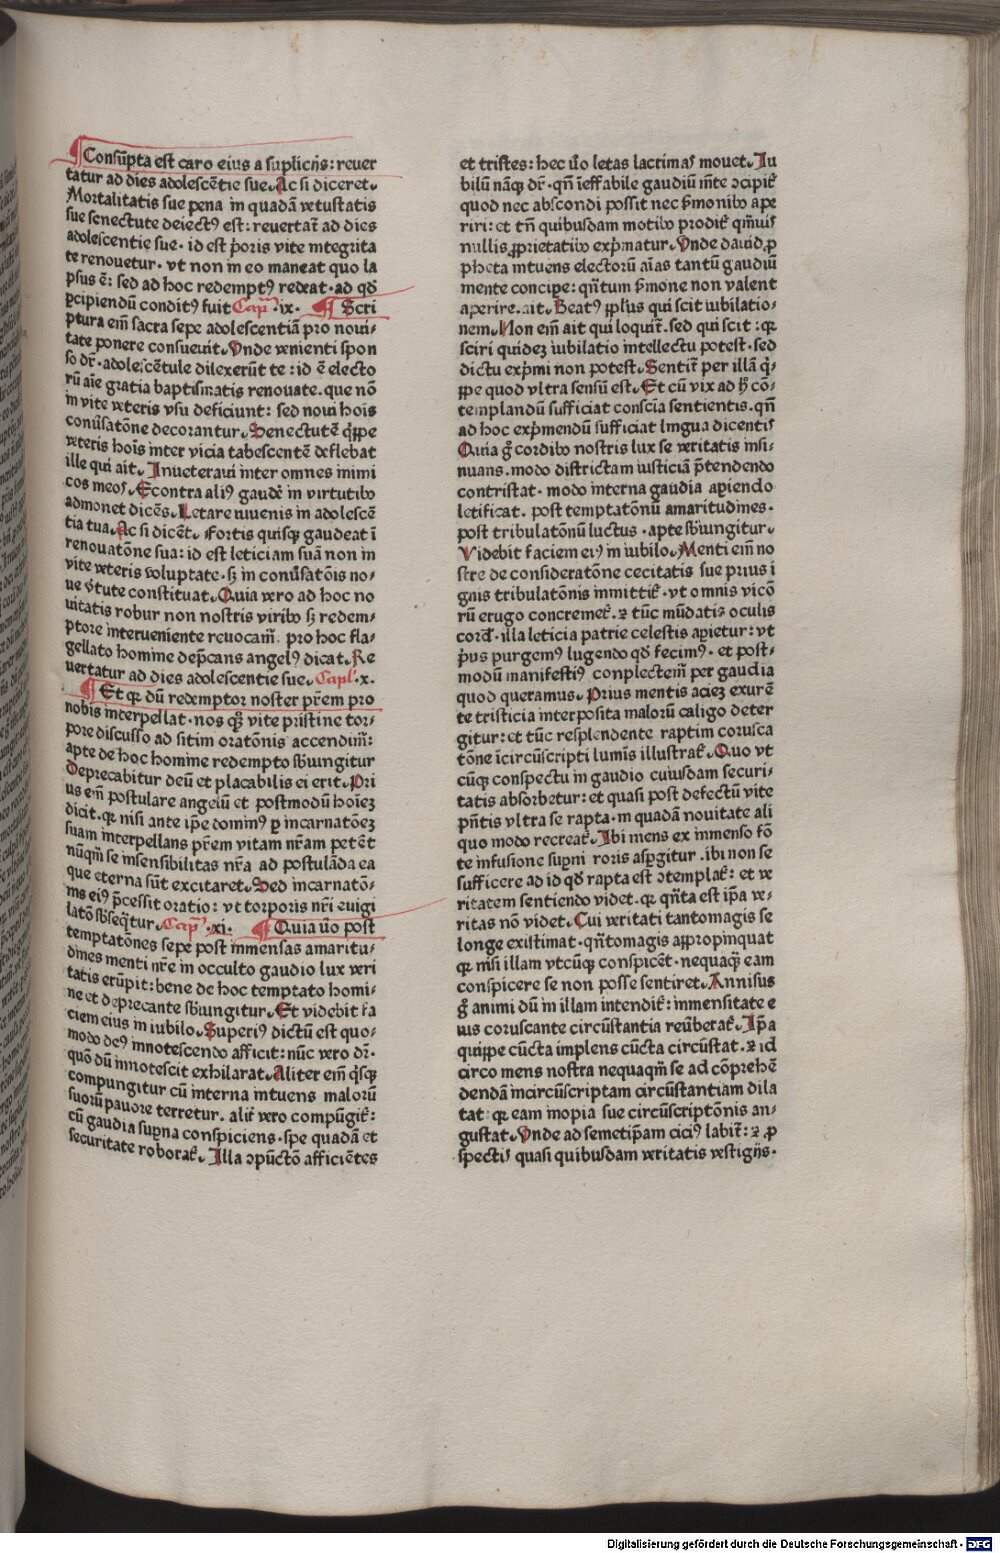 ¶Consūpta est caro eius a supliciis: reuer
tatur ad dies adolescētie sue. Ac si diceret.
Mortalitatis sue pena in quadā vetustatis
sue senectute deiectꝰ est: reuertat̄ ad dies
adolescentie sue. id est p̄oris vite integrita
te renouetur. vt non in eo maneat quo la
psus ē: sed ad hoc redemptꝰ redeat. ad qd̄
ꝑcipiendū conditꝰ fuit Capᷓ. ix. ¶ Scri
ptura em̄ sacra sepe adolescentiā pro noui-
tate ponere consueuit. Vnde venienti spon
so dr̄. adolescētule dilexerūt te: id ē electo
rū aīe gratia baptismatis renouate. que nō
in vite veteris vsu deficiunt: sed noui hoīs
conūsatōne decorantur. Senectutē q̄ppe
veteris hoīs inter vicia tabescentē deflebat
ille qui ait. Inueteraui inter omnes inimi
cos meos. Econtra aliꝰ gaudē in virtutibꝰ
admonet dicēs. Letare iuuenis in adolescē
tia tua. Ac si dicēt. Fortis quisqꝫ gaudeat ī
renouatōne sua: id est leticiam suā non in
vite veteris voluptate. sꝫ in conūsatōis no-
ue v̄tute constituat. Quia vero ad hoc no
uitatis robur non nostris viribꝰ sꝫ redem-
ptore interueniente reuocam̄. pro hoc fla-
gellato homine dep̄cans angelꝰ dicat. Re
uertatur ad dies adolescentie sue. Capl̄. x.
¶ Et qꝛ dū redemptor noster pr̄em pro
nobis interpellat. nos qꝫ vite pristine tor-
pore discusso ad sitim oratōnis accendim̄:
apte de hoc homine redempto sb̄iungitur
Deprecabitur deū et placabilis ei erit. Pri
us em̄ postulare angelū et postmodū hoīeꝫ
dicit. qꝛ nisi ante ip̄e dominꝰ ꝑ incarnatōeꝫ
suam interpellans pr̄em vitam nr̄am petēt
nūqm̄ se insensibilitas nr̄a ad postulāda ea
que eterna sūt excitaret. Sed incarnatō-
nis eiꝰ p̄cessit oratio: vt torporis nr̄i euigi
latō sb̄seq̄tur. Capᷓ. xi. ¶ Quia ūo post
temptatōnes sepe post inmensas amaritu-
dines menti nr̄e in occulto gaudio lux veri
tatis erūpit: bene de hoc temptato homi-
ne et deprecante sb̄iungitur. Et videbit fa
ciem eius in iubilo. Superiꝰ dictū est quo-
modo deꝰ innotescendo afficit: nūc vero dr̄.
quō dū innotescit exhilarat. Aliter em̄ q̄sqꝫ
compungitur cū interna intuens malorū
suorū pauore terretur. alit̄ vero compūgit̄:
cū gaudia supna conspiciens. spe quadā et
securitate roborat̄. Illa ↄpūctō afficiētes
et tristes: hec ūo letas lacrimas mouet. Iu
bilū nāqꝫ dr̄. qn̄ ieffabile gaudiū mēte ↄcipit̄
quod nec abscondi possit nec ẜmonibꝰ ape
riri: et tn̄ quibusdam motibꝰ prodit̄ qm̄uis
nullis ꝓprietatibꝰ exp̄matur. Vnde dauid ꝓ
pheta intuens electorū aīas tantū gaudiū
mente concipe: qn̄tum ẜmone non valent
aperire. ait. Beatꝰ ppl̄us qui scit iubilatio-
nem. Non em̄ ait qui loquit̄. sed qui scit: qꝛ
sciri quideꝫ iubilatio intellectu potest. sed
dictu exp̄mi non potest. Sentit̄ per illā q̄-
ppe quod vltra sensū est. Et cū vix ad ħ cō-
templandū sufficiat conscīa sentientis. qn̄
ad hoc exp̄mendū sufficiat lingua dicentis
Quia ḡ cordibꝰ nostris lux se veritatis insi-
nuans. modo districtam iusticiā p̄tendendo
contristat. modo interna gaudia apiendo
letificat. post temptatōnū amaritudines.
post tribulatōnū luctus. apte sb̄iungitur.
Videbit faciem eiꝰ in iubilo. Menti em̄ no
stre de consideratōne cecitatis sue prius i
gnis tribulatōnis inmittit̄. vt omnis vicō
rū erugo concremet̄. ⁊ tūc mūdatis oculis
cord̄. illa leticia patrie celestis apietur: vt
p̄us purgemꝰ lugendo qd̄ fecimꝰ. et post-
modū manifestiꝰ conplectem̄ per gaudia
quod queramus. Prius mentis acieꝫ exurē
te tristicia interposita malorū caligo deter
gitur: et tūc resplendente raptim corusca
tōne īcircūscripti lumīs illustrat̄. Quo vt
cūqꝫ conspectu in gaudio cuiusdam securi-
tatis absorbetur: et quasi post defectū vite
pn̄tis vltra se rapta. in quadā nouitate ali
quo modo recreat̄. Ibi mens ex inmenso fō
te infusione supni roris aspgitur. ibi non se
sufficere ad id qd̄ rapta est ↄtemplat̄: et ve
ritatem sentiendo videt. qꝛ qn̄ta est ip̄a ve-
ritas nō videt. Cui veritati tantomagis se
longe existimat. qn̄tomagis appropinquat
qꝛ nisi illam vtcūqꝫ conspicēt. nequaqꝫ eam
conspicere se non posse sentiret. Annisus
ḡ animi dū in illam intendit̄: inmensitate e
ius coruscante circūstantia reūberat̄. Ip̄a
quippe cūcta implens cūcta circūstat. ⁊ id
circo mens nostra nequaqm̄ se ad cōprehē
dendā incircūscriptam circūstantiam dila
tat: qꝛ eam inopia sue circūscriptōnis an-
gustat. Vnde ad semetip̄am ciciꝰ labit̄: ⁊ ꝓ
spectis quasi quibusdam veritatis vestigijs.
Digitalisierung gefördert durch die Deutsche Forschungsgemeinschaft - DFG